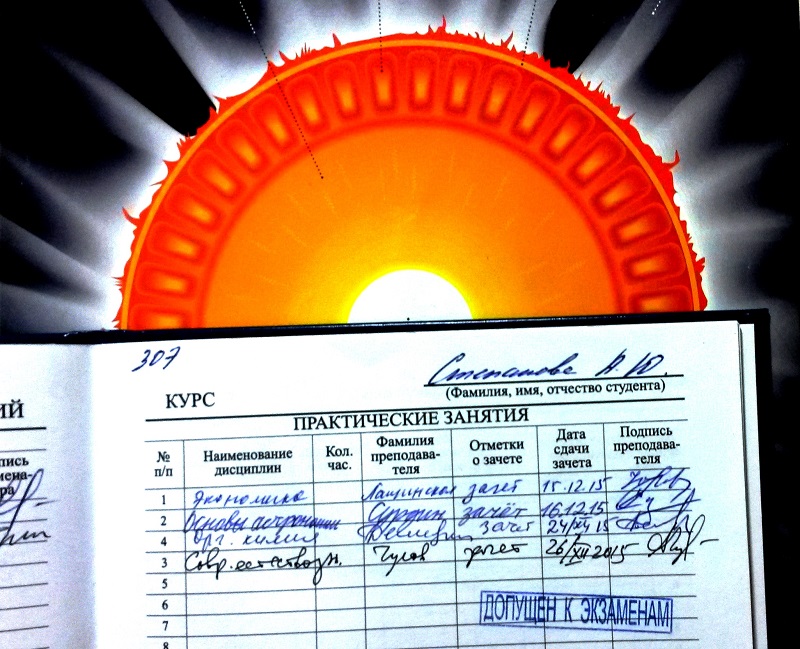 307
Степанова А. Ю.
КУРС
(Фамилия, имя, отчество студента)
ИЙ
ПРАКТИЧЕСКИЕ ЗАНЯТИЯ
№ п/п Наименование дисциплин Кол. час. Фамилия преподава- теля Отметки о зачете Дата сдачи зачета Подпись преподава- теля
1 Экономика зачет 15.12.15
2 Основы астрономии Сурдин зачёт 16.12.15
4 Орг. химия зачет 24/XII 15
3 Совр. естествозн. Чуров зачет 26/XII 2015
5
6 ДОПУЩЕН К ЭКЗАМЕНАМ
7
8